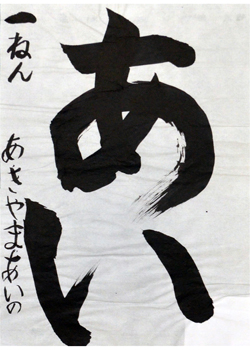 あい
一ねん
あきやまあいの